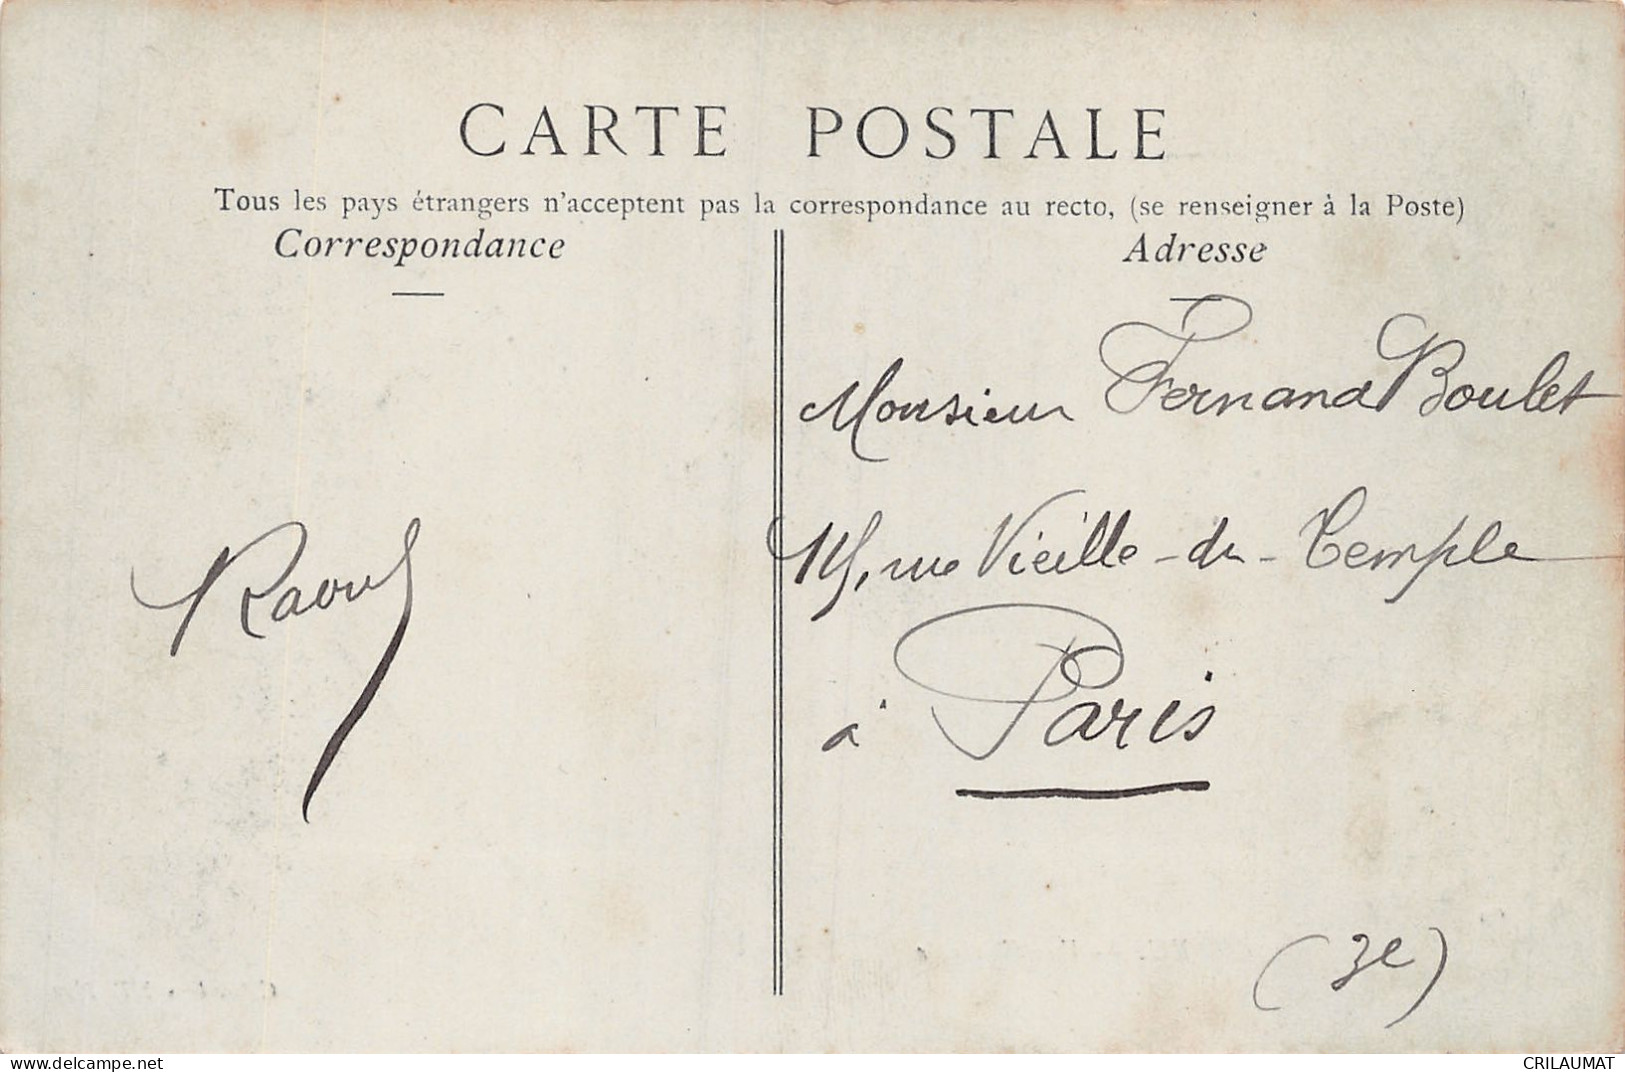 CARTE POSTALE
Tous les pays étrangers n'acceptent pas la correspondance au recto, (se renseigner à la Poste)
Correspondance
Adresse
Monsieur Fernand Boulet
rue Vieille-du-Temple
à Paris
Raoul
(3e)
www.delcampe.net
CRILAUMAT